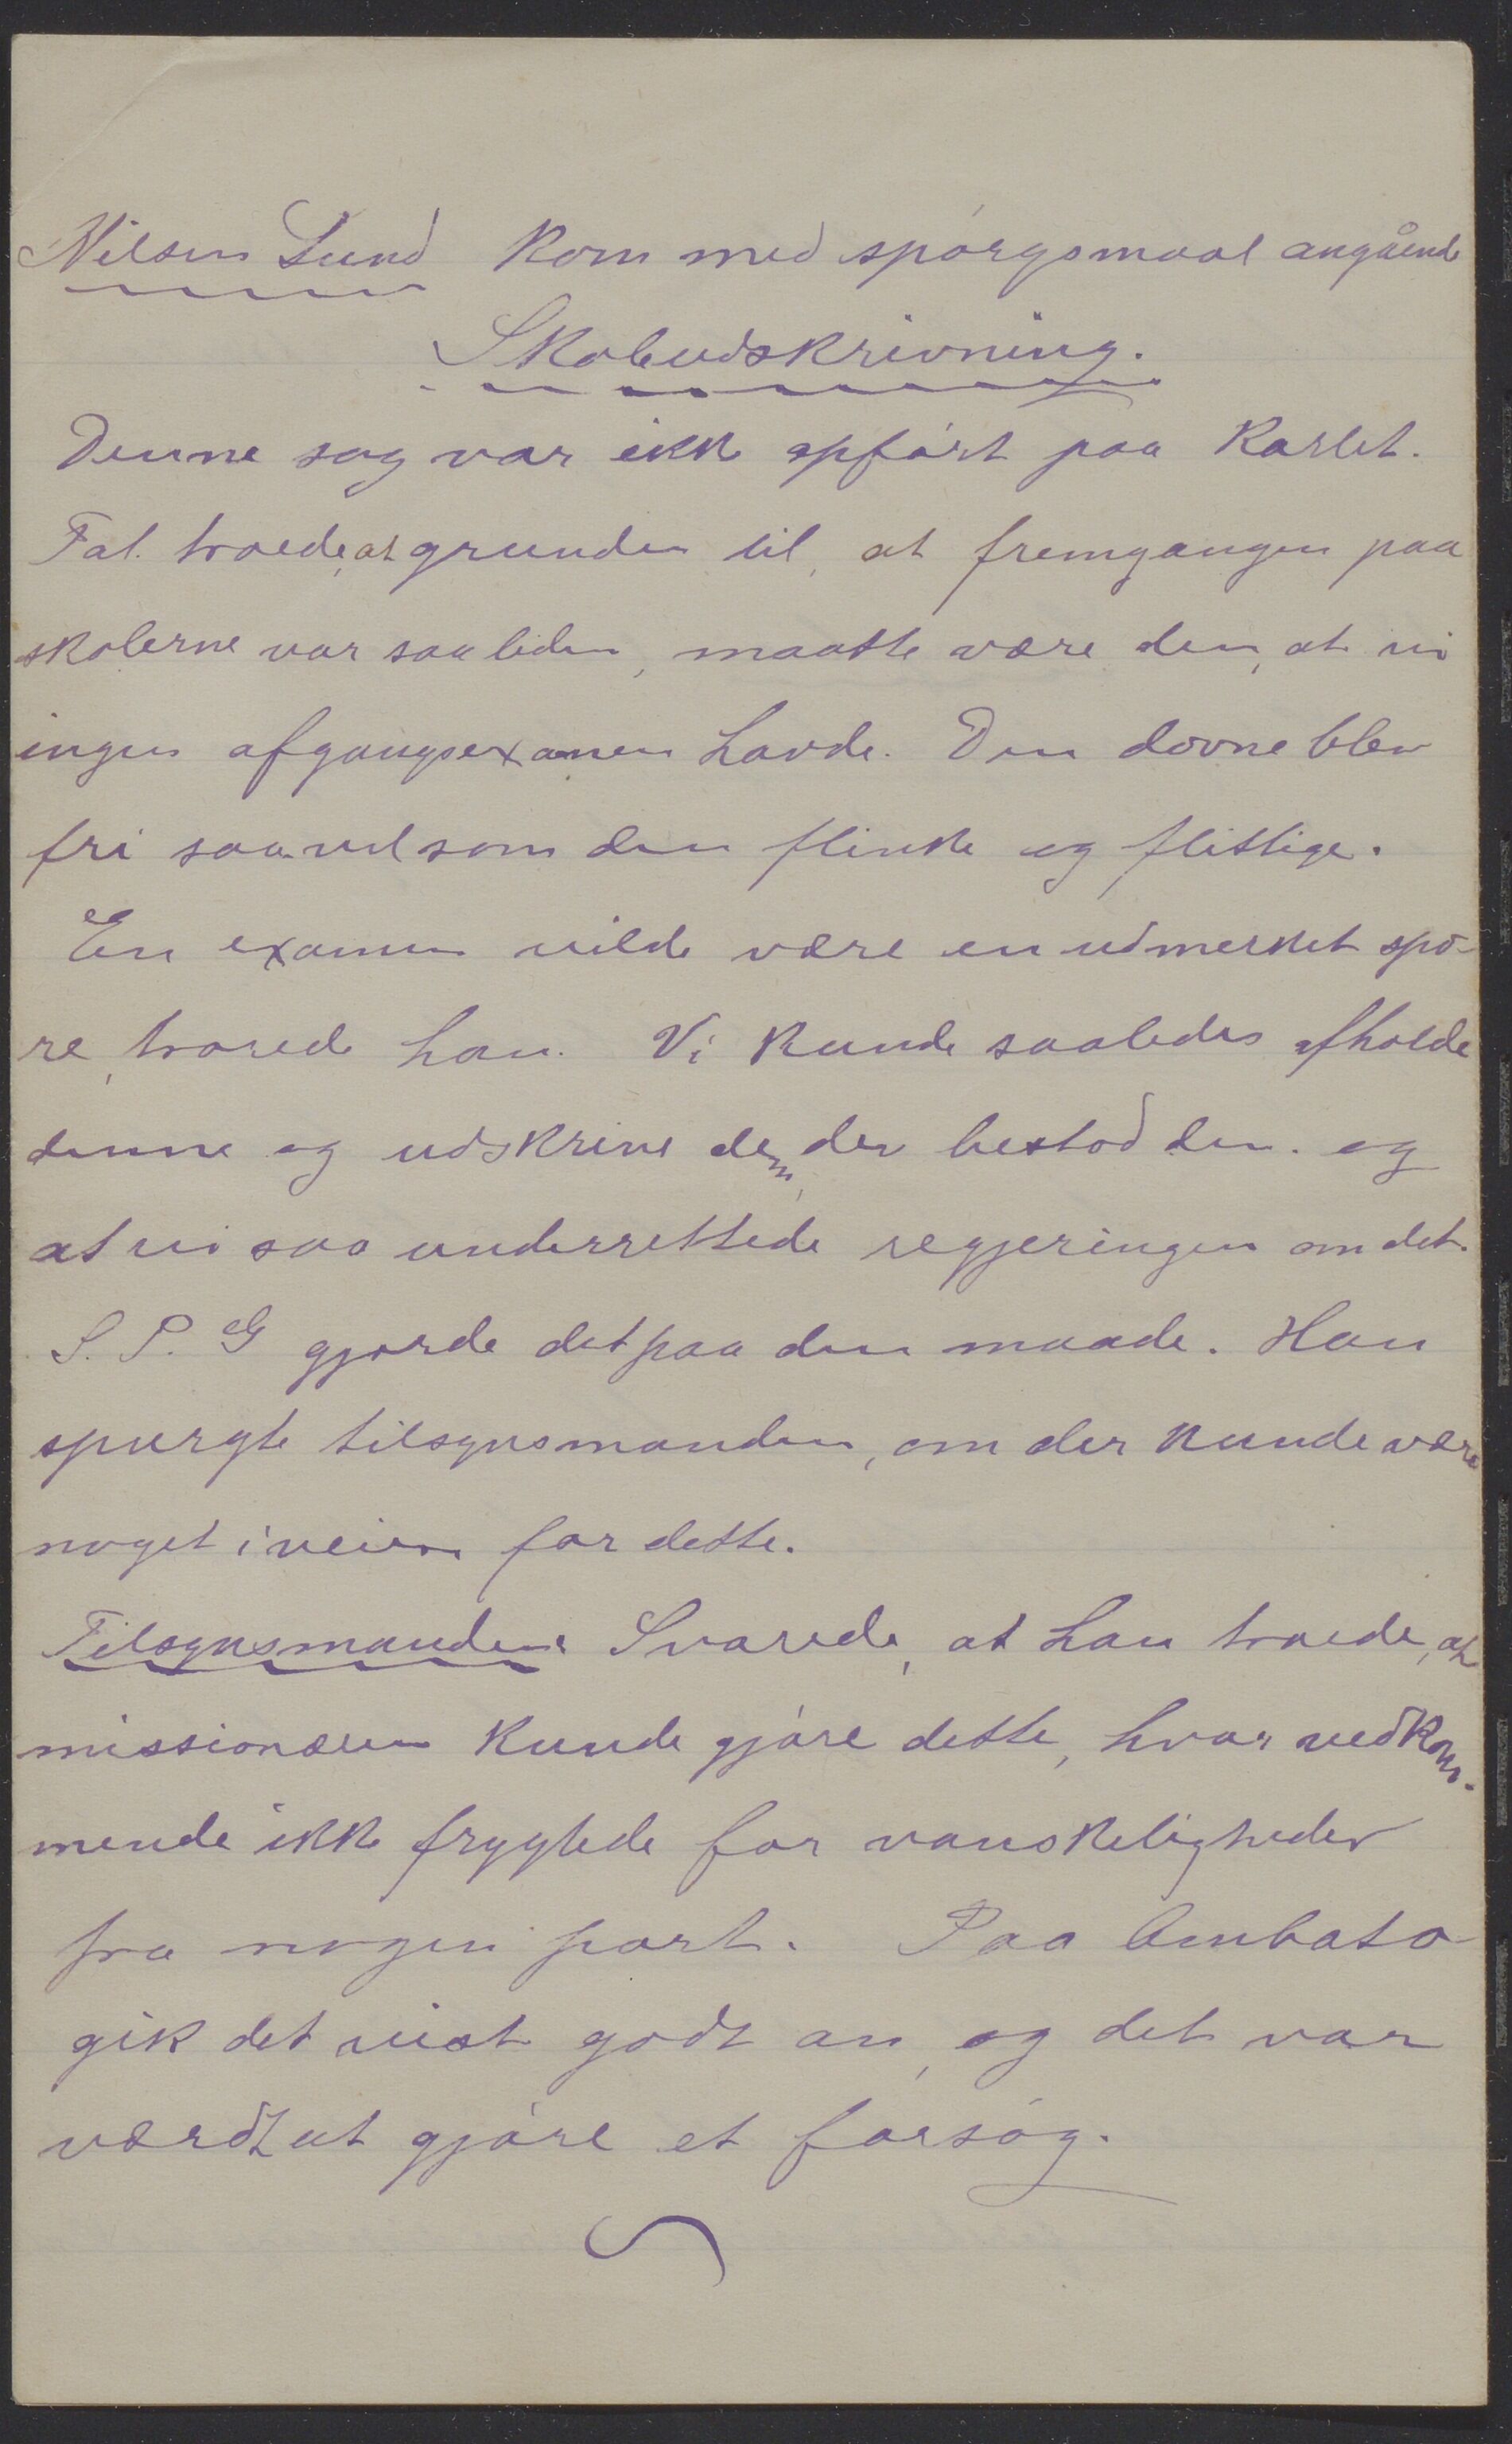 Nilsen Lund kom med spórgsmaal angående
Skoleudskrivning.
Denne sag var ikke opfórt paa Karlet.
Tal. troede, at grunden til, at fremgangen paa
skolerne var saa liden, maatte være den, at vi
ingen afgangsexamen havde. Den dovne blev
fri saavel som den flinke og flittige.
En examen vilde være en udmerket spo-
re, troede han. Vi kunde saaledes afholde
denne og udskrive dem, der bestod den. og
at vi saa underrettede regjeringen om det.
S. P. G gjorde det paa den maade. Han
spurgte tilsynsmanden, om der kunde være
noget i veien for dette.
Tilsynsmanden Svarede, at han troede, at
missionæren kunde gjóre dette, hvor vedkom-
mende ikke frygtede for vanskeligheder
fra nogen part. Paa Ambato
gik det vist godt an, og det var
værdt at gjóre et forsóg.